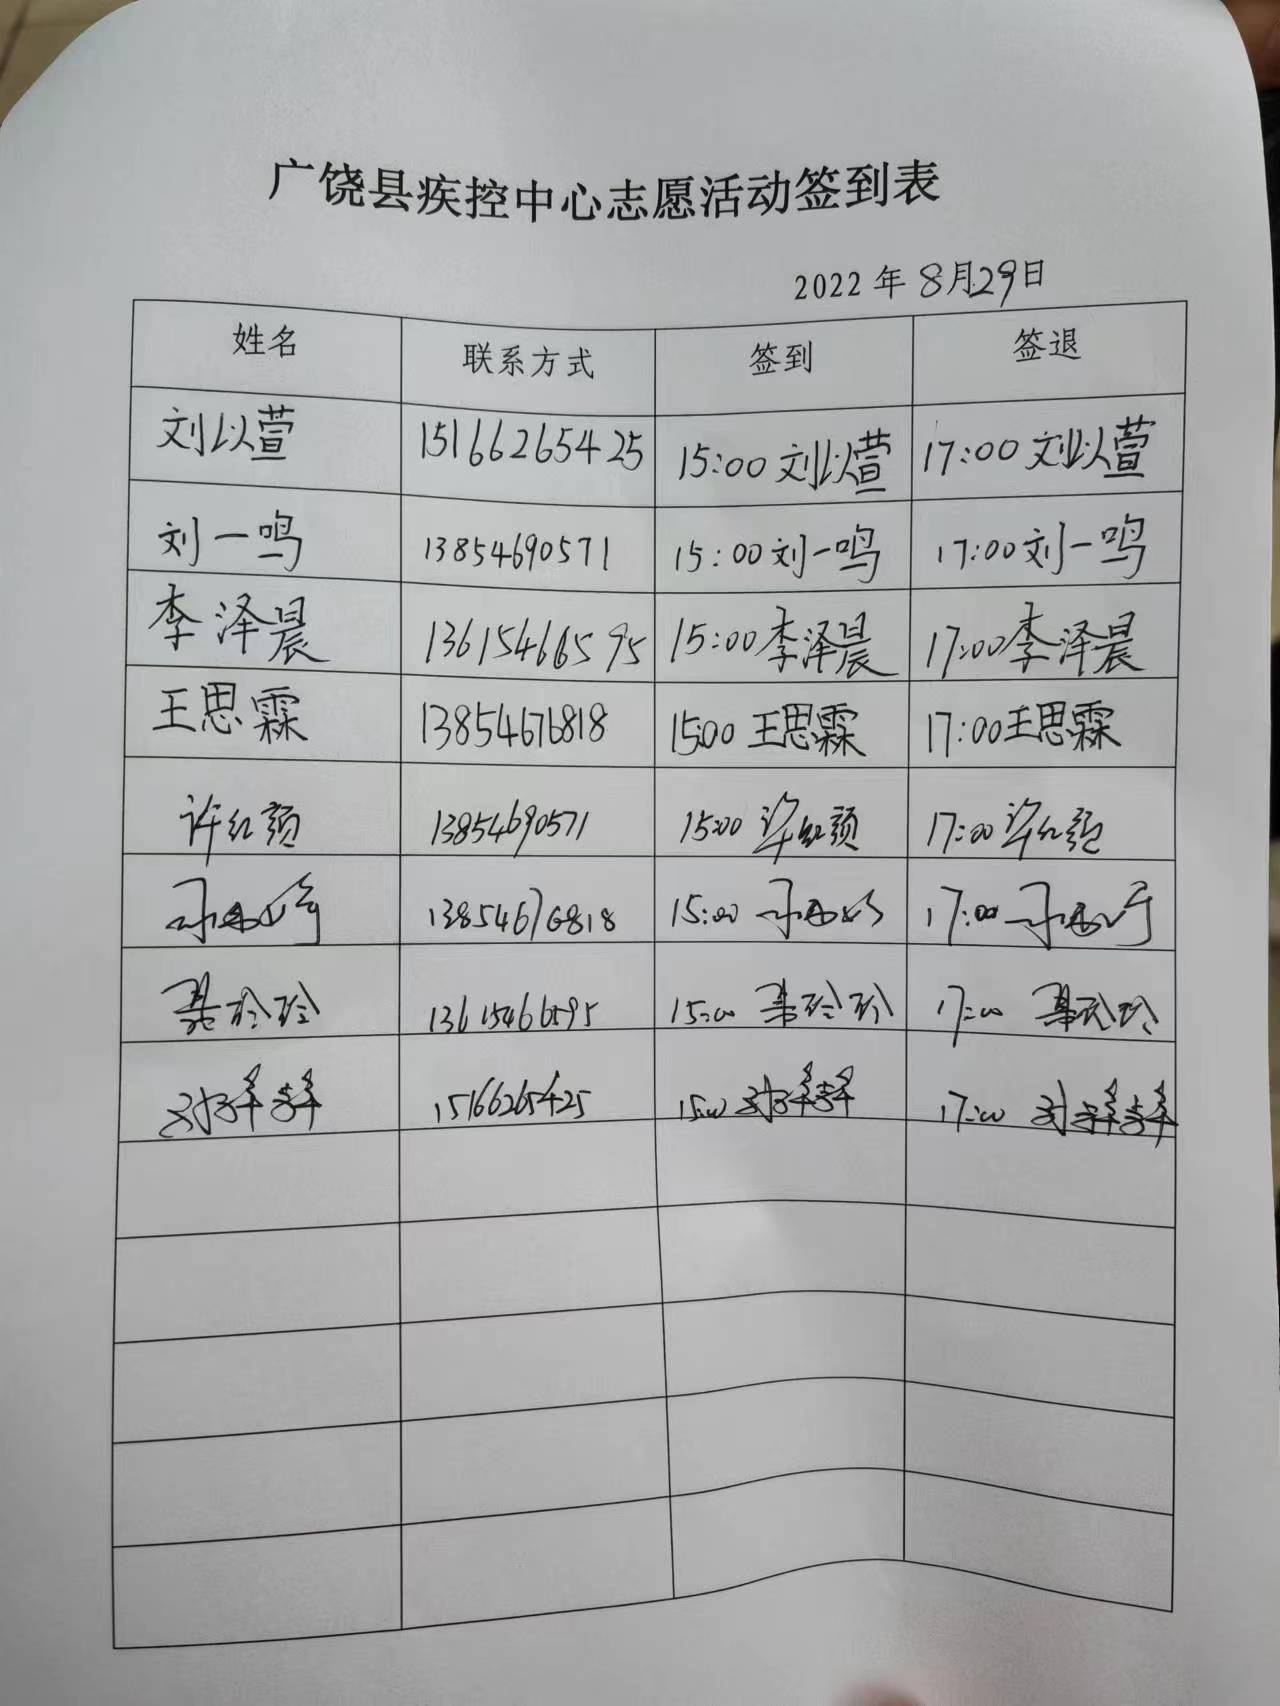 广饶县疾控中心志愿活动签到表
2022年8月29日
姓名 联系方式 签到 签退
刘以萱 15166265425 15:00 刘以萱 17:00 刘以萱
刘一鸣 13854690571 15:00 刘一鸣 17:00 刘一鸣
李泽晨 13615466595 15:00 李泽晨 17:00 李泽晨
王思霖 13854676818 15:00 王思霖 17:00 王思霖
许红颜 13854690571 15:00 许红颜 17:00 许红颜
13854676818 15:00 17:00
玲玲 13615466595 15:00 玲玲 17:00 玲玲
15166265425 15:00 17:00